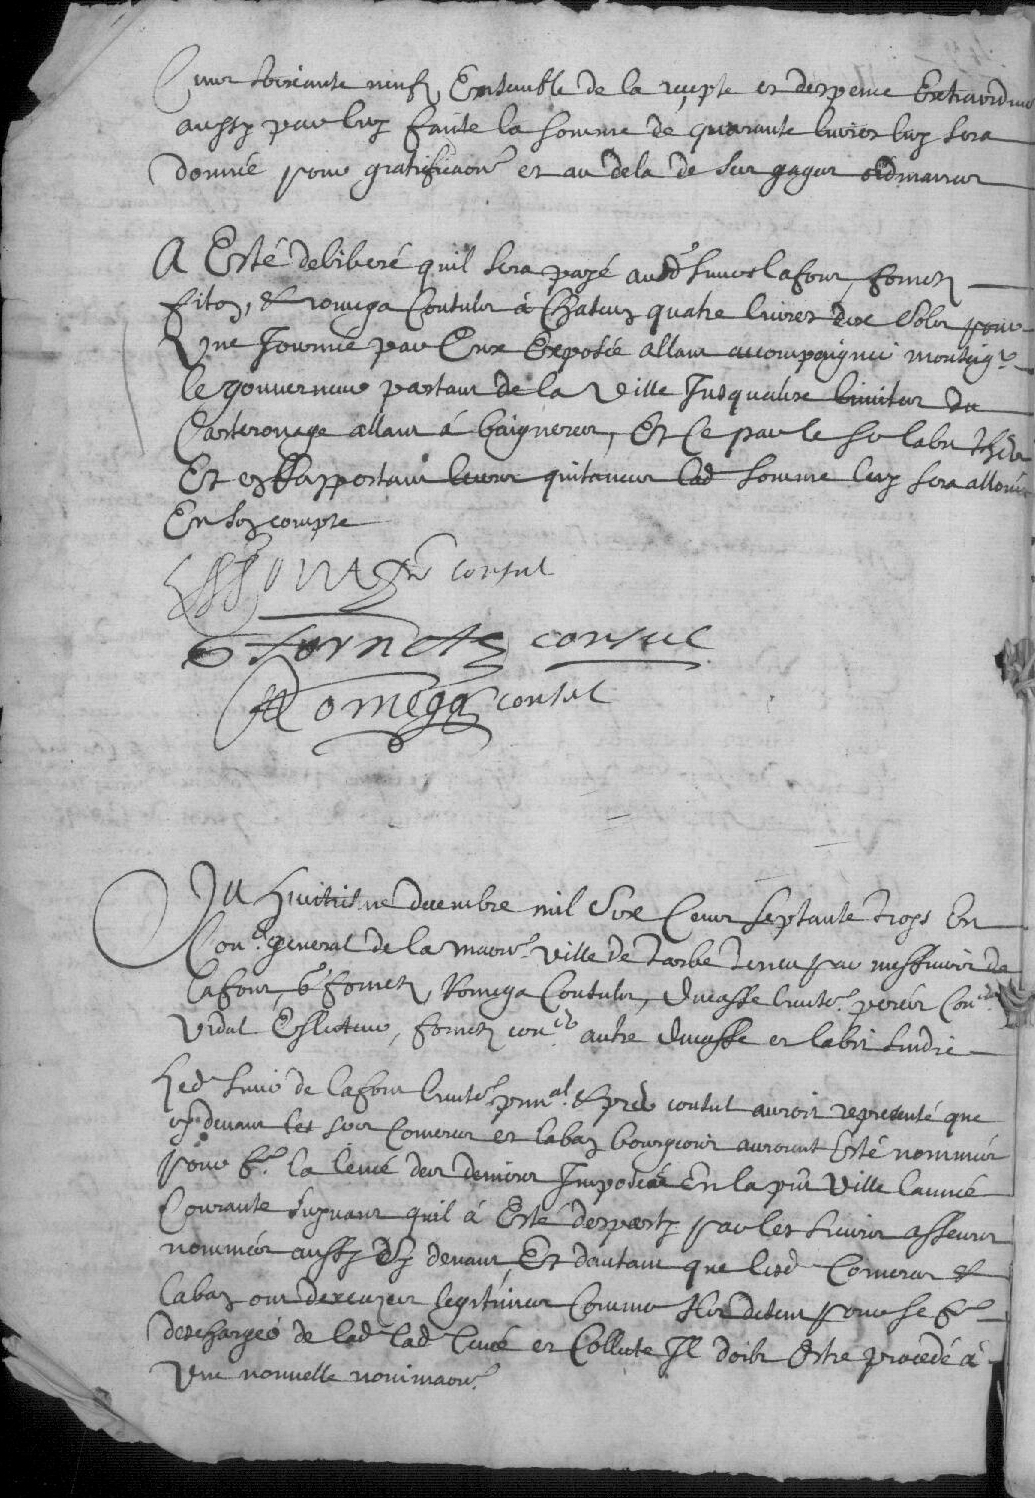 Cens soixante neuf, Ensemble de la recepte et despence Extraordine
aussy par luy faite la somme de quarante livres luy sera
donnée pour gratificaon et au dela de ses gages ordinaires
A Esté deliberé quil sera payé ausd sieurs lafour, fornetz
fiton, et romega Consuls á Chacun quatre livres dix solz pour
Une Journée par Eux Exposée allant accompaigner monseigr
le gouverneur partant de la Ville Jusquaux limites du
allant á baigneres, Et Ce par le sr labu
Et en Rapportant leurs quitances lad somme luy sera allouée
En son compte
consul
fornetz consul
Romega consul
Du Huitiesme decembre mil Six Cens septante troys En
Conl general de la maon Ville de tarbe tenu par messieurs de
Lafour, fornetz, Romega Consuls, ducasse
Vidal Esleuteur, fornetz autre ducasse et labu sindic
Led sieur de lafour et consul auroit representé que
cy devant les srs Comeres et labay bourgeois auroient Esté nommés
pour fe la levée des deniers Imposés En la pnt Ville lannée
Courante suyvant quil á Esté desparty par les sieurs asseurs
nommés aussy Cy devant, Et dautant que lesd Comeres et
labay ont dexcuses legitimes Comme pour se fe
deschargés de lad lad levée et Collecte Il doibt Estre procedé á
Une nouvelle nominaon